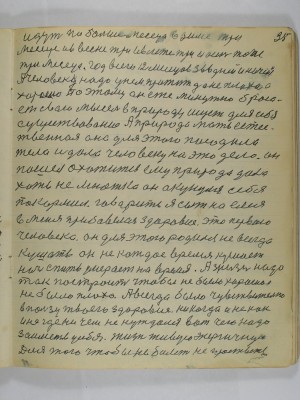 35
идут по больше месеца в зиме три
месеца и в весне три и в лете три и осен тоже
три месеца. год всего 12 месецов 365 дней и ночей
Человеку надо у них притит даже плохо и
хорошо поэтому он ежеминутно броса-
ет своего мысел в природу ищет для себя
существования А природа мать естес-
твенная она для этого породила
тело и дала человеку на это дело. он
пошел охотится ему природа дала
хоть не множко он окунулся себя
покормил. говарить я сыт как либо
в меня прибавилось здоровие. это первого
человека. он для этого родился не всегда
кушать он не каждое время кушает
ноч спить умерает на время. А жизнь надо
так построить чтобы не было хорошо и
не было плохо. А всегда было чувствително
в пользу твоего здоровия. никогда и не как
и не где и ни чем не нуждался вот чего надо
заиметь у себя. жизн живую энергичную
Для этого чтобы не болет не простыват